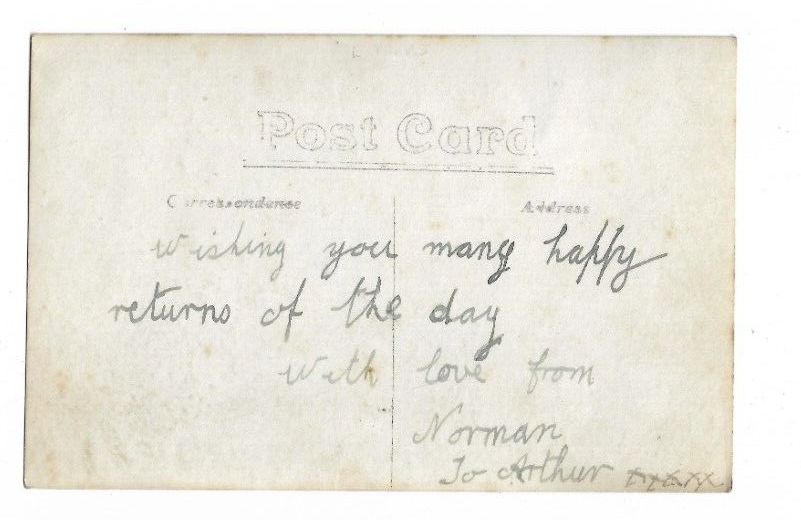 Post Card
Correspondence Address
wishing you many happy
returns of the day
with love from
Norman
To Arthur xxxxx